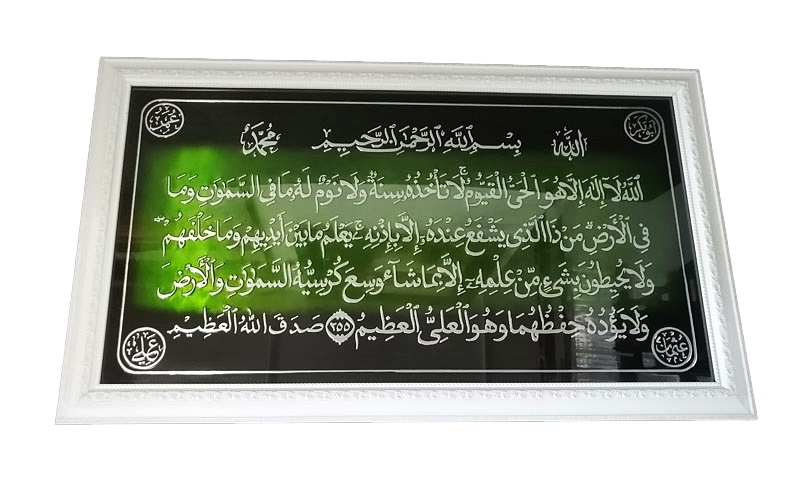 ابوبكر
عمر
الله بِسْمِ اللهِ الرَّحْمٰنِ الرَّحِيمِ مُحَمَّد
اَللهُ لَآ إِلٰهَ إِلَّا هُوَ الْحَيُّ الْقَيُّومُ ۚ لَا تَأْخُذُهُ سِنَةٌ وَلَا نَوْمٌ ۚ لَهُ مَا فِي السَّمٰوٰتِ وَمَا
فِي الْأَرْضِ ۗ مَنْ ذَا الَّذِي يَشْفَعُ عِنْدَهُ إِلَّا بِإِذْنِهِ ۚ يَعْلَمُ مَا بَيْنَ أَيْدِيهِمْ وَمَا خَلْفَهُمْ ۖ
وَلَا يُحِيطُونَ بِشَيْءٍ مِّنْ عِلْمِهِ إِلَّا بِمَا شَآءَ ۚ وَسِعَ كُرْسِيُّهُ السَّمٰوٰتِ وَالْأَرْضَ
وَلَا يَؤُدُهُ حِفْظُهُمَا وَهُوَ الْعَلِيُّ الْعَظِيمُ ٢٥٥ صَدَقَ اللهُ الْعَظِيمُ
عثمن
علي